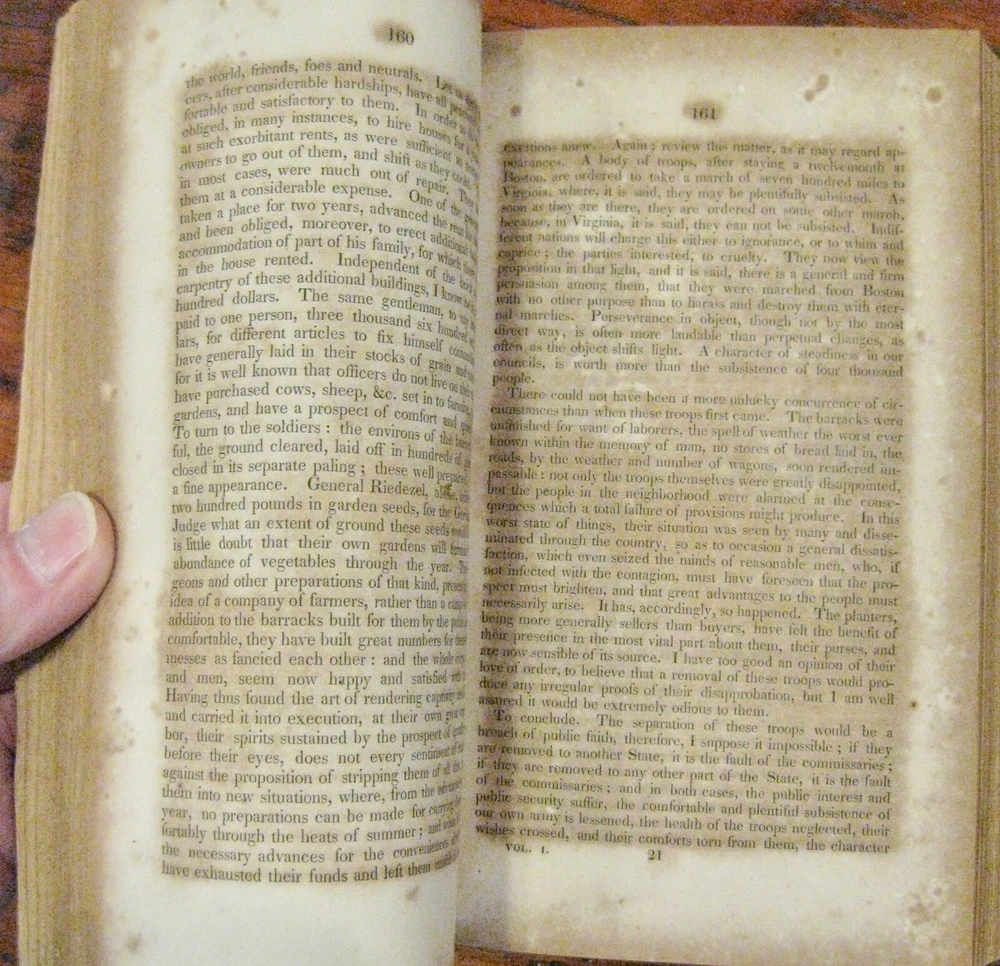 160
the world, friends, foes and neutrals. Let us
cers, after considerable hardships, have all
fortable and satisfactory to them. In order to
obliged, in many instances, to hire houses for
at such exorbitant rents, as were sufficient to
owners to go out of them, and shift as they
in most cases, were much out of repair. They
them at a considerable expense. One of the
taken a place for two years, advanced the rent
and been obliged, moreover, to erect additional
accommodation of part of his family, for which
in the house rented. Independent of the
carpentry of these additional buildings, I know
hundred dollars. The same gentleman, to
paid to one person, three thousand six hundred
lars, for different articles to fix himself
have generally laid in their stocks of grain and
for it is well known that officers do not live on
have purchased cows, sheep, &c. set in to
gardens, and have a prospect of comfort and
To turn to the soldiers: the environs of the
ful, the ground cleared, laid off in hundreds of
closed in its separate paling; these well prepared,
a fine appearance. General Riedezel,
two hundred pounds in garden seeds, for the
Judge what an extent of ground these seeds
is little doubt that their own gardens will
abundance of vegetables through the year.
geons and other preparations of that kind,
idea of a company of farmers, rather than a
addition to the barracks built for them by the
comfortable, they have built great numbers for
messes as fancied each other: and the whole
and men, seem now happy and satisfied
Having thus found the art of rendering
and carried it into execution, at their own great
bor, their spirits sustained by the prospect of
before their eyes, does not every sentiment of
against the proposition of stripping them of all
them into new situations, where, from the
year, no preparations can be made for carrying
fortably through the heats of summer; and
the necessary advances for the
have exhausted their funds and left them
161
exertions anew. Again; review this matter, as it may regard ap-
pearances. A body of troops, after staying a twelvemonth at
Boston, are ordered to take a march of seven hundred miles to
Virginia, where, it is said, they may be plentifully subsisted. As
soon as they are there, they are ordered on some other march,
because, in Virginia, it is said, they can not be subsisted. Indif-
ferent nations will charge this either to ignorance, or to whim and
caprice; the parties interested, to cruelty. They now view the
proposition in that light, and it is said, there is a general and firm
persuasion among them, that they were marched from Boston
with no other purpose than to harass and destroy them with eter-
nal marches. Perseverance in object, though not by the most
direct way, is often more laudable than perpetual changes, as
often as the object shifts light. A character of steadiness in our
councils, is worth more than the subsistence of four thousand
people.
There could not have been a more unlucky concurrence of cir-
cumstances than when these troops first came. The barracks were
unfinished for want of laborers, the spell of weather the worst ever
known within the memory of man, no stores of bread laid in, the
roads, by the weather and number of wagons, soon rendered im-
passable: not only the troops themselves were greatly disappointed,
but the people in the neighborhood were alarmed at the conse-
quences which a total failure of provisions might produce. In this
worst state of things, their situation was seen by many and disse-
minated through the country, so as to occasion a general dissatis-
faction, which even seized the minds of reasonable men, who, if
not infected with the contagion, must have foreseen that the pro-
spect must brighten, and that great advantages to the people must
necessarily arise. It has, accordingly, so happened. The planters,
being more generally sellers than buyers, have felt the benefit of
their presence in the most vital part about them, their purses, and
are now sensible of its source. I have too good an opinion of their
love of order, to believe that a removal of these troops would pro-
duce any irregular proofs of their disapprobation, but I am well
assured it would be extremely odious to them.
To conclude. The separation of these troops would be a
breach of public faith, therefore, I suppose it impossible; if they
are removed to another State, it is the fault of the commissaries;
if they are removed to any other part of the State, it is the fault
of the commissaries; and in both cases, the public interest and
public security suffer, the comfortable and plentiful subsistence of
our own army is lessened, the health of the troops neglected, their
wishes crossed, and their comforts torn from them, the character
VOL. I. 21